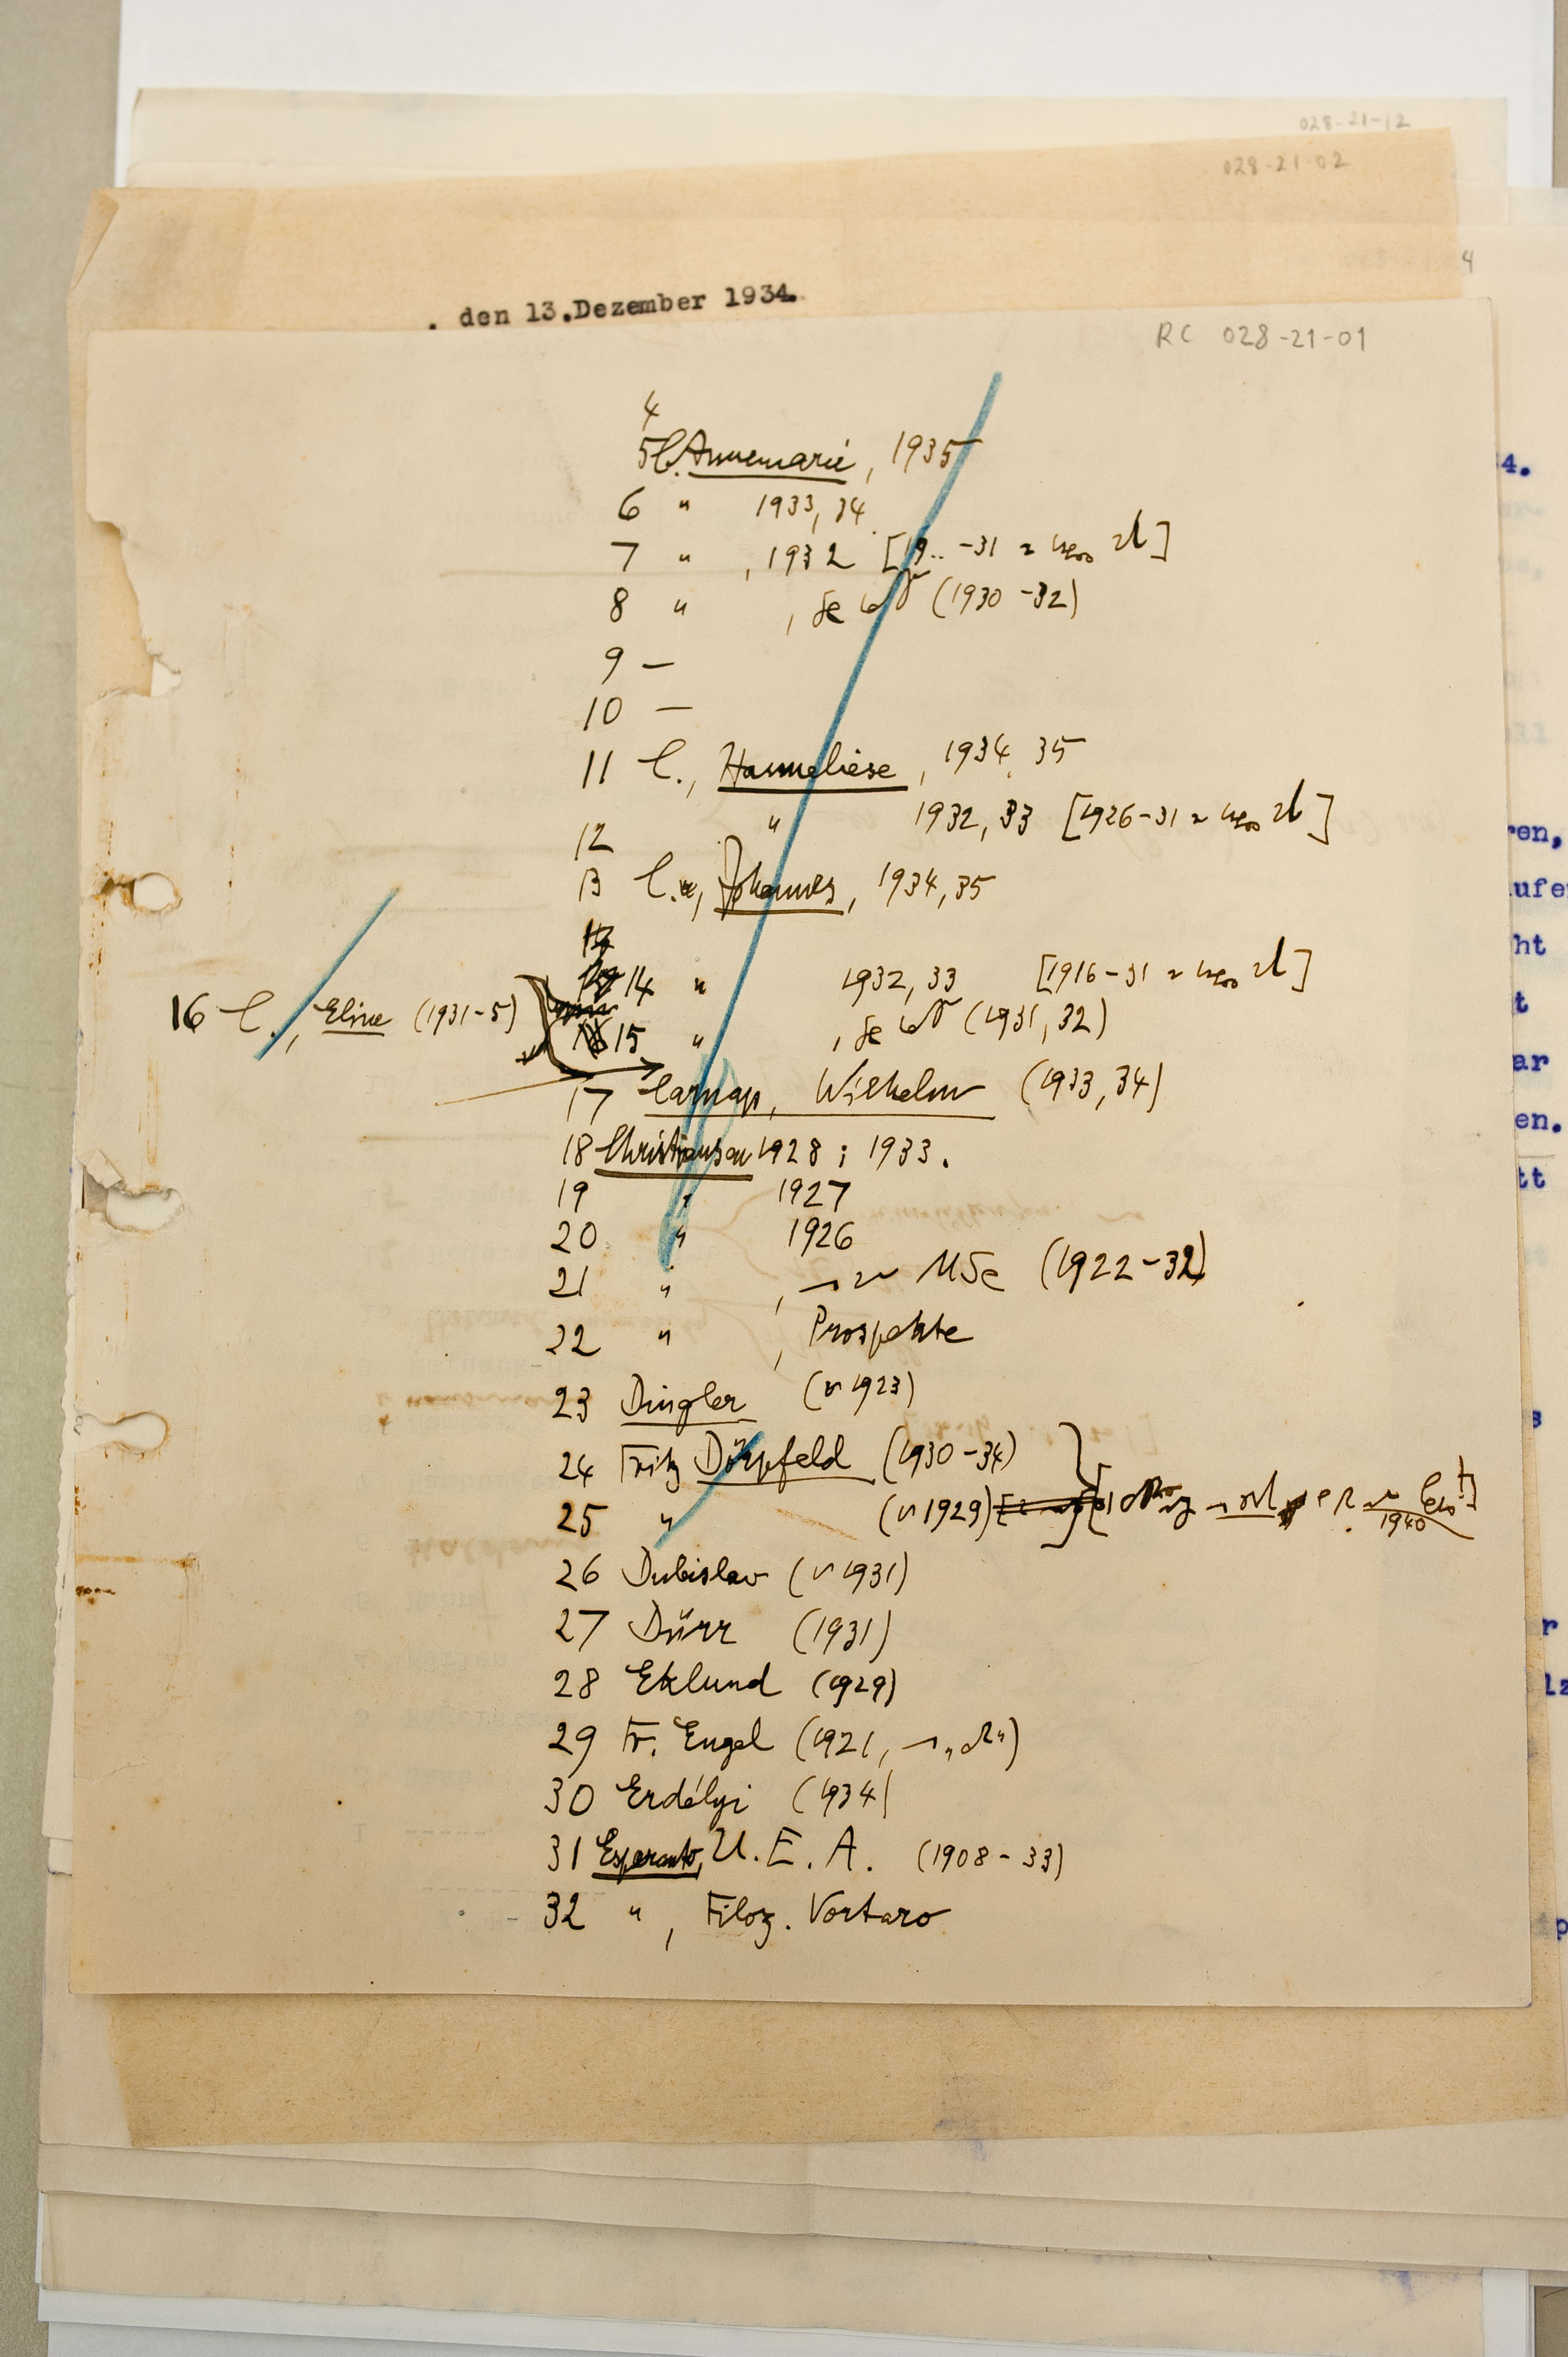 028-21-12
028-21-02
4
. den 13.Dezember 1934.
RC 028-21-01
4
5 C. Annemarie, 1935
6 " 1933, 34
7 " , 1932 [19.. -31
8 " , (1930-32)
9 —
10 —
11 C., Hanneliese, 1934, 35
12 " 1932, 33 [1926-31
13 C., Johannes, 1934, 35
14 " 1932, 33 [1916-31
16 C., Eline (1931-5)
15 " , (1931, 32)
17 Carnap, Wilhelm (1933, 34)
18 Christiansen 1928; 1933.
19 " 1927
20 " 1926
21 " , (1922-32)
22 " , Prospekte
23 Dingler (1923)
24 Fritz Dörpfeld (1930-34)
25 " (1929) 1940
26 Dubislav (1931)
27 Dürr (1931)
28 Eklund (1929)
29 Fr. Engel (1921,
30 Erdélyi (1934)
31 Esperanto, U.E.A. (1908-33)
32 " , Filoz. Vortaro
4.
ren,
ufe
ht
t
ar
en.
tt
s
r
lz
p